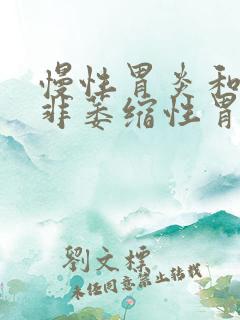 慢性胃炎和
非萎缩性胃
劉文標
未任同意禁止转载